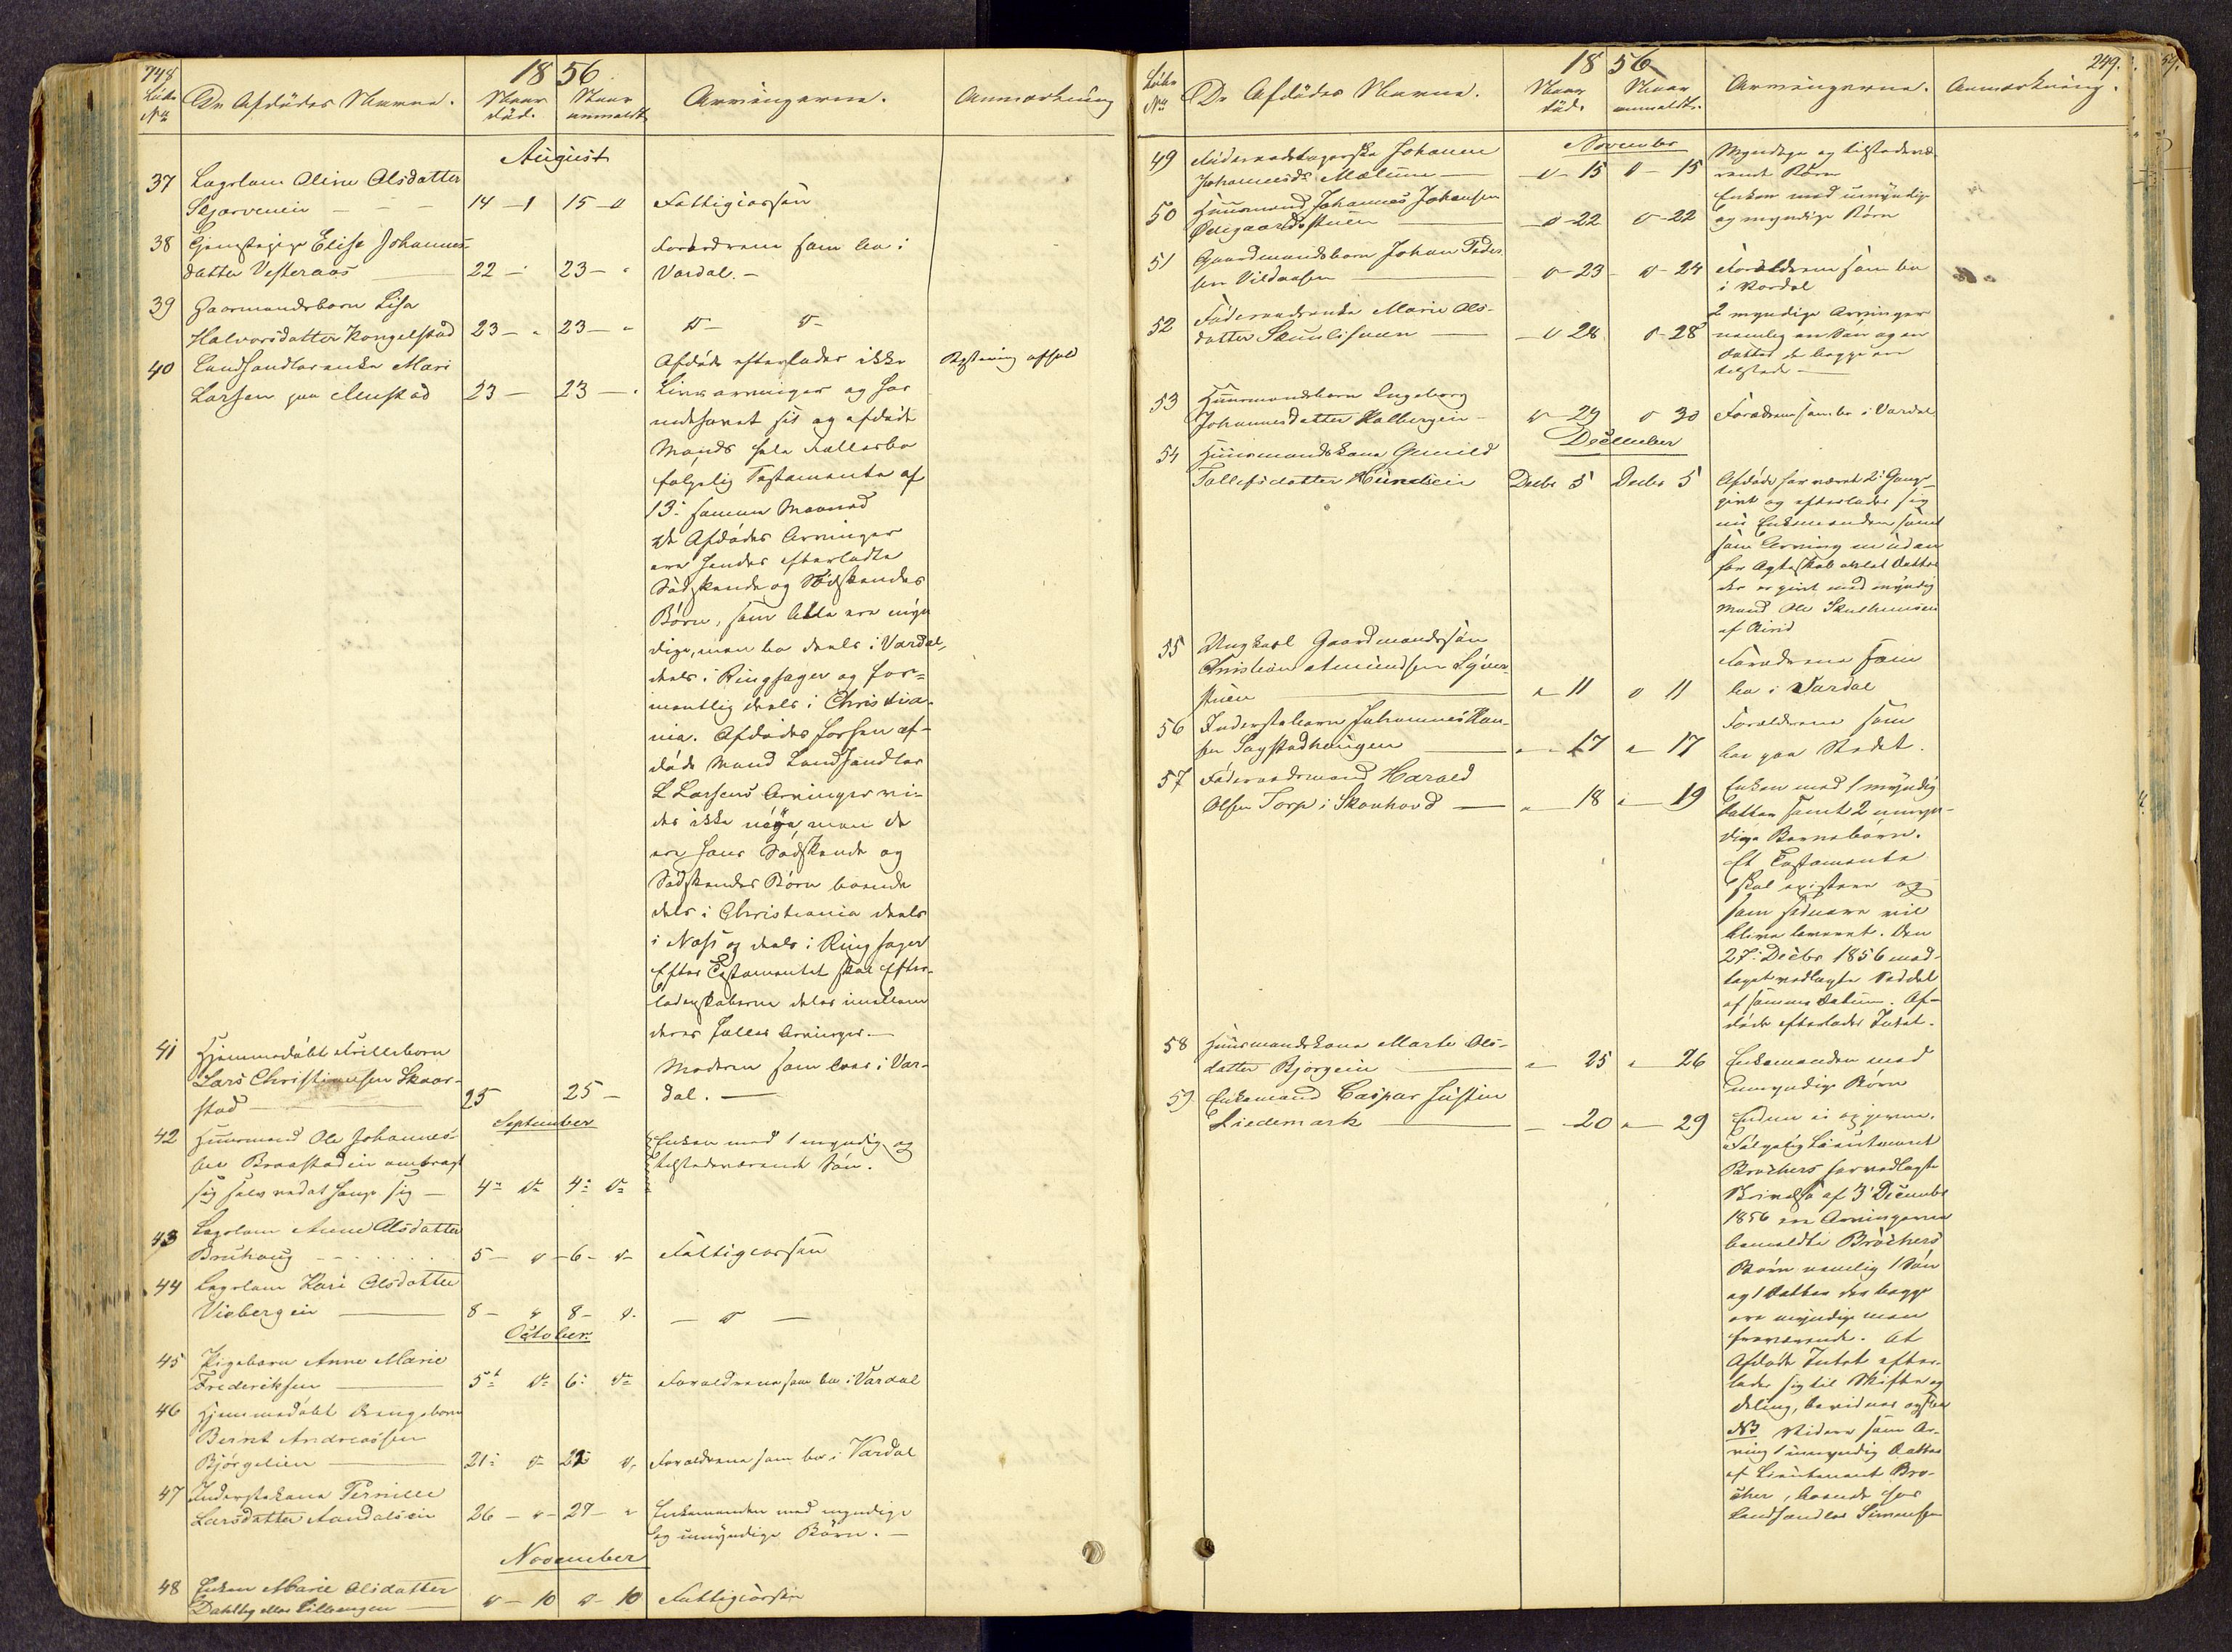 748
1856
Løbe No
De Afdødes Navne.
Naar død.
Naar anmeldt.
Arvingerne.
Anmærkning
August
37 Lægslem Oline Olsdatter
Skjærveneie 14 - " 15 - " Fattigcassen
38 Tjenestepige Elise Johannes-
datter Vesteraas 22 - " 23 - "
Forældrene som bo i
Vardal. -
39 Gaarmandsbarn Lisa
Halvorsdatter Kongelstad 23 - " 23 - " D- D-
40 Landhandlerenke Mari
Larsen paa Mustad 23 - 23 -
Afdøde efterlader ikke
Livsarvinger og har
indehavet sit og afdøde
Mands hele Fællesbo
følgelig Testamente af
13: samme Maaned
De Afdødes Arvinger
ere hendes efterladte
Sødskende og Sødskendes
Børn, som Alle ere myn
dige, men bo deels i Vardal,
deels i Ringsager og for=
mentlig deels i Christia-
nia. Afdødes forhen af-
døde Mand Landhandler
L Larsens Arvinger vi-
des ikke nøye, men de
ere hans Sødskende og
Sødskendes Børn boende
dels i Christiania deels
i Næs og deels i Ringsager
Efter Testamentet skal Efter-
ladenskaberne deles imellem
deres fælles Arvinger. -
41 Hjemmedøbt Trillebarn
Lars Christiansen Skaar-
stad 25 25 -
Moderen som boer i Var-
dal. -
September
42 Huusmand Ole Johannes-
sen Braastadeie ombragt
sig selv ved at hænge sig - 4- D- 4: D-
Enken med 1 myndig og
tilstedeværende Søn.
43 Lægslem Anne Olsdatter
Bruhaug 5 - D - 6 - D- Fattigcassen
44 Lægslem Kari Olsdatter
Viebergeie 8 - D 8 - D. - D -
October
45 Pigebarn Anne Marie
Frederiksen 5te D- 6: D- Forældrene som bo i Vardal
46 Hjemmedøbt Drengebarn
Bernt Andreassen
Bjørgelien 21: D- 22 D, Forældrene som bo i Vardal
47 Inderstekone Pernille
Larsdatter Aandalseie 26 - D - 27 - D
Enkemanden med myndige
og umyndige Børn. -
November
48 Enken Marie Olsdatter
Dahlby eller Lillesengen D - 10 D - 10 Fattigcassen
249.
1856
Løbe No
De Afdødes Navne.
Naar død.
Naar anmeldt.
Arvingerne.
Anmærkning.
November
49 Føderaadstagerske Johanne
Johannesdr. Mælum D - 15 D - 15
Myndige og tilstedevæ-
rende Børn
50 Huusmand Johannes Johansen
Ødegaardsstuen D - 22 D - 22
Enken med umyndige
og myndige Børn
51 Gaardmandsbarn Johan Peder
sen Vildaasen D - 23 - D - 24
Forældrene som bo
i Vardal
52 Føderaadsenke Marie Ols-
datter Skumlisveen D 28 D - 28
2 myndige Arvinger
nemlig en Søn og en
Datter der begge ere
tilstede -
53 Huusmandsbarn Ingeborg
Johannesdatter Kolbergeie D 29 D 30 Forældrene som bo i Vardal
December
54 Huusmandskone Gunild
Tollefsdatter Hundseie Decbr 5 Decbr 5
Afdøde har været 2: Gange
givt og efterlader sig
nu Enkemanden samt
som Arving en uden
for Ægteskab avlet Datter
der er givt med myndig
Mand Ole
af Biri
55 Ungkarl Gaardmandssøn
Christian Amundsen
stuen - 11 D 11
Forældrene som
bo i Vardal
56 Inderstebarn Johannes Han-
sen Sagstadhaugen - 17 - 17
Forældrene som
bor paa Stedet.
57 Føderaadsmand Harald
Olsen Torp i Skonhovd - 18 - 19
Enken med 1 myndig
Datter samt 2 umyn-
dige Børnebørn.
Et Testamente
skal existere og
som sednere vil
blive leveret. Den
27: Decbr 1856 mod-
taget vedlagte Seddel
af samme Datum. Af-
døde efterlader Intet.
58 Huusmandskone Marte Ols-
datter Bjørgeie - 25 - 26
Enkemanden med
umyndige Børn
59. Enkemand Caspar Justin
Liedemark - 20 - 29
Endnu ei opgivne.
Følgelig Lieutenant
Brochers her vedlagte
Skrivelse af 3' December
1856 ere Arvingerne
bemeldte Brochers
Børn nemlig 1 Søn
og 1 Datter der begge
ere myndige men
fraværende. At
Afdøde Intet efter-
lader sig til Skifte og
deling, bevidnes
NB Videre som Ar-
ving 1 umyndig Datter
af Lieutenant Bro-
cher, boende hos
Landhandler Simensen